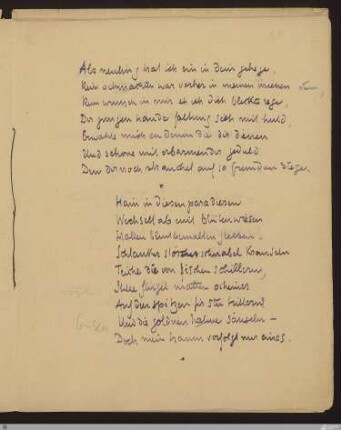 Als neuling trat ich ein in dein gehege
Kein staunen war vorher in meinen mienen
Kein wunsch in mir eh ich dich blickte rege.
Der jungen hände faltung sieh mit huld
Erwähle mich zu denen die dir dienen
Und schone mit erbarmender geduld
Den der noch strauchelt auf so fremdem stege.
*
Hain in diesen paradiesen
Wechselt ab mit blütenwiesen
Hallen buntbemalten fliesen.
Schlanker störche schnäbel kräuseln
Teiche die von fischen schillern
Vögel-reihen matten scheines
Auf den
Und die goldnen säuseln –
Doch mein traum verfolgt nur eines.